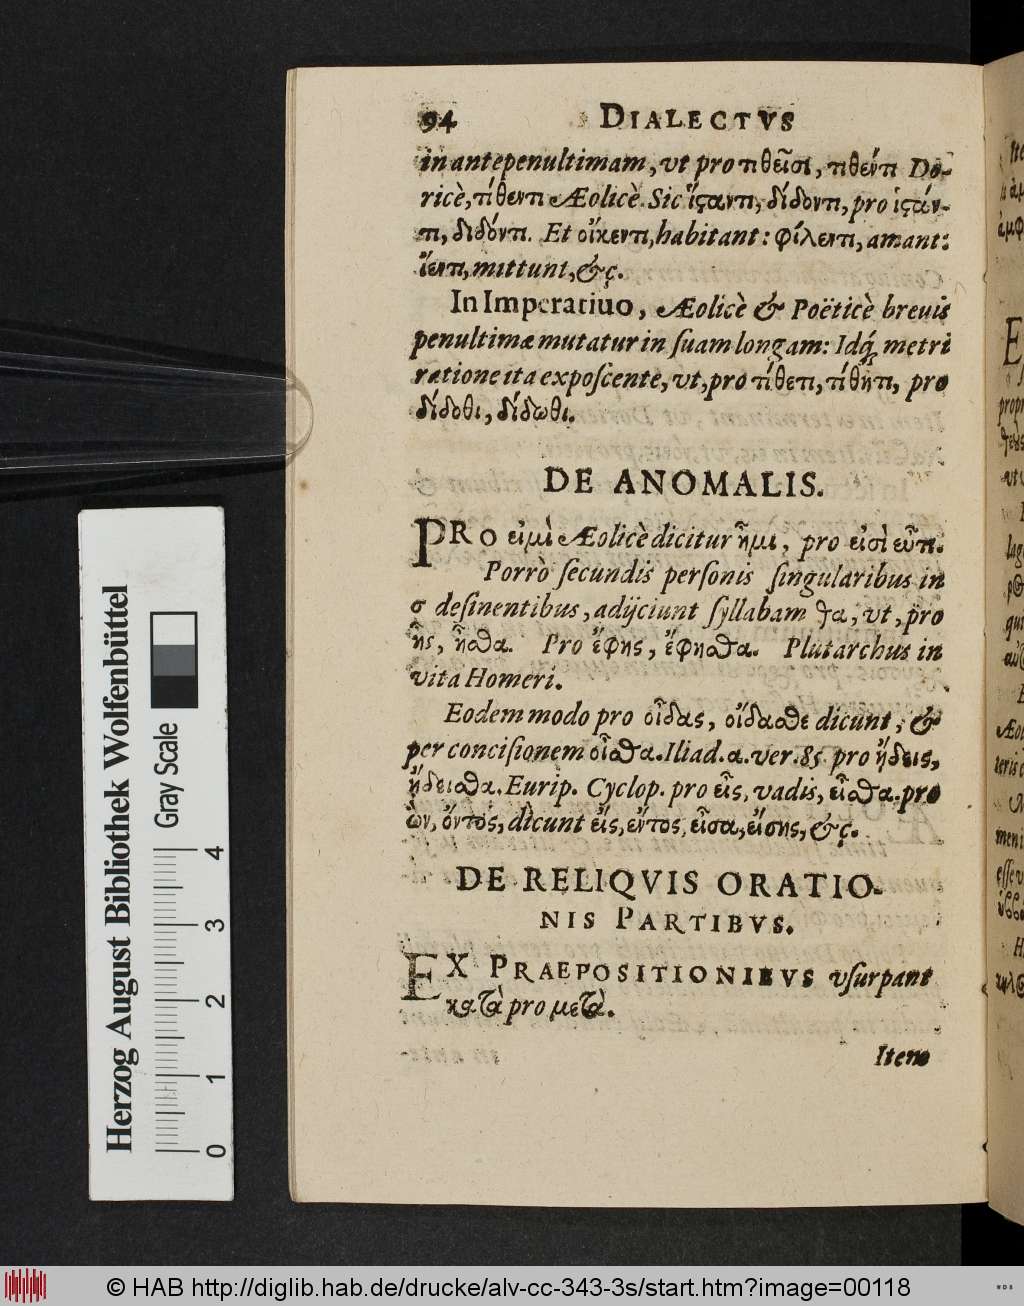 94 DIALECTVS
in antepenultimam, vt pro τιθεῖσι, τιθέντι Do-
ricè, τίθεντι Æolicè. Sic ἵϛαντι, δίδοντι, pro ἱϛάν-
τι, διδόντι. Et οἴκεντι, habitant: φίλεντι, amant:
ἵεντι, mittunt, &c.
In Imperatiuo, Æolicè & Poëticè breuis
penultimæ mutatur in ſuam longam: Idq́, metri
ratione ita expoſcente, vt, pro τίθετι, τίθητι, pro
δίδοθι, δίδωθι.
DE ANOMALIS.
PRO εἰμὶ Æolicè dicitur ἦμι, pro εἰσὶ εὖτι.
Porrò ſecundis perſonis ſingularibus in
σ deſinentibus, adijciunt ſyllabam θα, vt, pro
ἦς, ἦσθα. Pro ἔφης, ἔφησθα. Plutarchus in
vita Homeri.
Eodem modo pro οἶδας, οἴδασθε dicunt, &
per conciſionem οἶσθα. Iliad. α. ver. 85. pro ᾔδεις,
ᾔδεισθα. Eurip. Cyclop. pro εἶς, vadis, εἶσθα. pro
ὢν, ὄντος, dicunt εἴς, ἔντος, εἶσα, εἴσης, &c.
DE RELIQVIS ORATIO-
NIS PARTIBVS.
EX PRAEPOSITIONIBVS vſurpant
κατὰ pro μετὰ.
Item
Herzog August Bibliothek Wolfenbüttel
Gray Scale
0 1 2 3 4
© HAB http://diglib.hab.de/drucke/alv-cc-343-3s/start.htm?image=00118